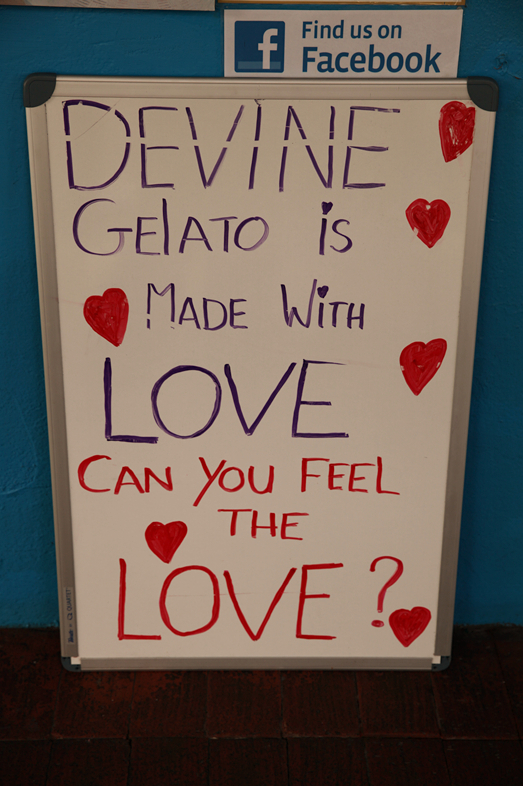 f Find us on
Facebook
DEVINE
GElATO iS
MADE WiTH
LOVE
CAN YOU FEEL
THE
LOVE?
QUARTET